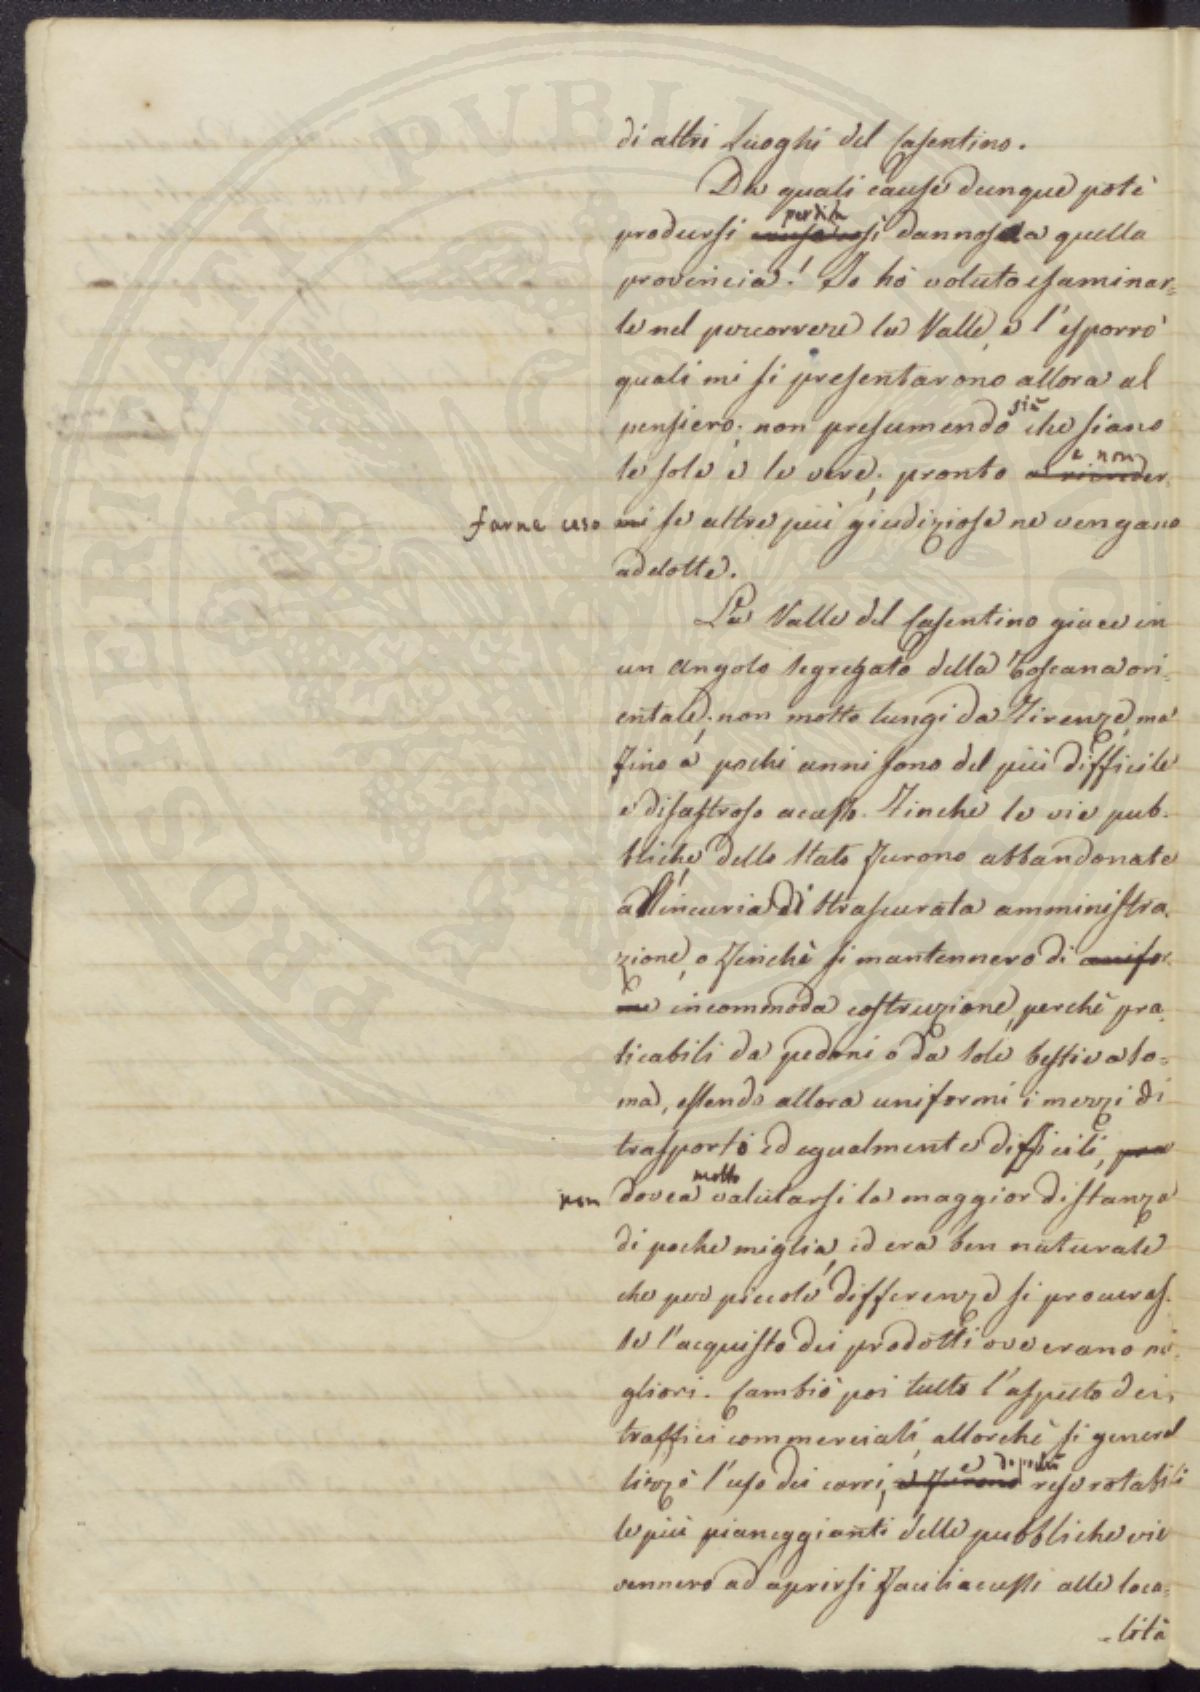 di altri Luoghi del Casentino.
Da quali cause dunque potè
perdita
prodursi sì dannosa a quella
provincia! Io hò voluto esaminar=
le nel percorrere la Valle, e l'esporrò
quali mi si presentarono allora al
già
pensiero; non presumendo che siano
e non
le sole e le vere; pronto a ricreder
farne uso mi se altre più giudiziose ne vengano
addotte.
La Valle del Casentino giace in
un angolo segregato della Toscana ori=
entale; non molto lungi da Firenze, ma
fino a pochi anni sono del più difficile
e disastroso accesso. Finchè le vie pub=
bliche dello Stato furono abbandonate
all'incuria di trascurata amministra=
zione, o finchè si mantennero di unifor=
me incommoda costruzione, perchè pra=
ticabili da pedoni o da sole bestie a so=
ma, essendo allora uniformi i mezzi di
trasporto ed egualmente difficili,
molto
non dovea valutarsi la maggior distanza
di poche miglia, ed era ben naturale
che per piccole differenze si procuras=
se l'acquisto dei prodotti ove erano mi=
gliori. Cambiò poi tutto l'aspetto dei
traffici commerciali, allorchè si general
e dopochè
lizzò l'uso dei carri, e furono rese rotabili
le più pianeggianti delle pubbliche vie
vennero ad aprirsi facili accessi alle loca=
=lità
PROSPERITATI PUBLICAE